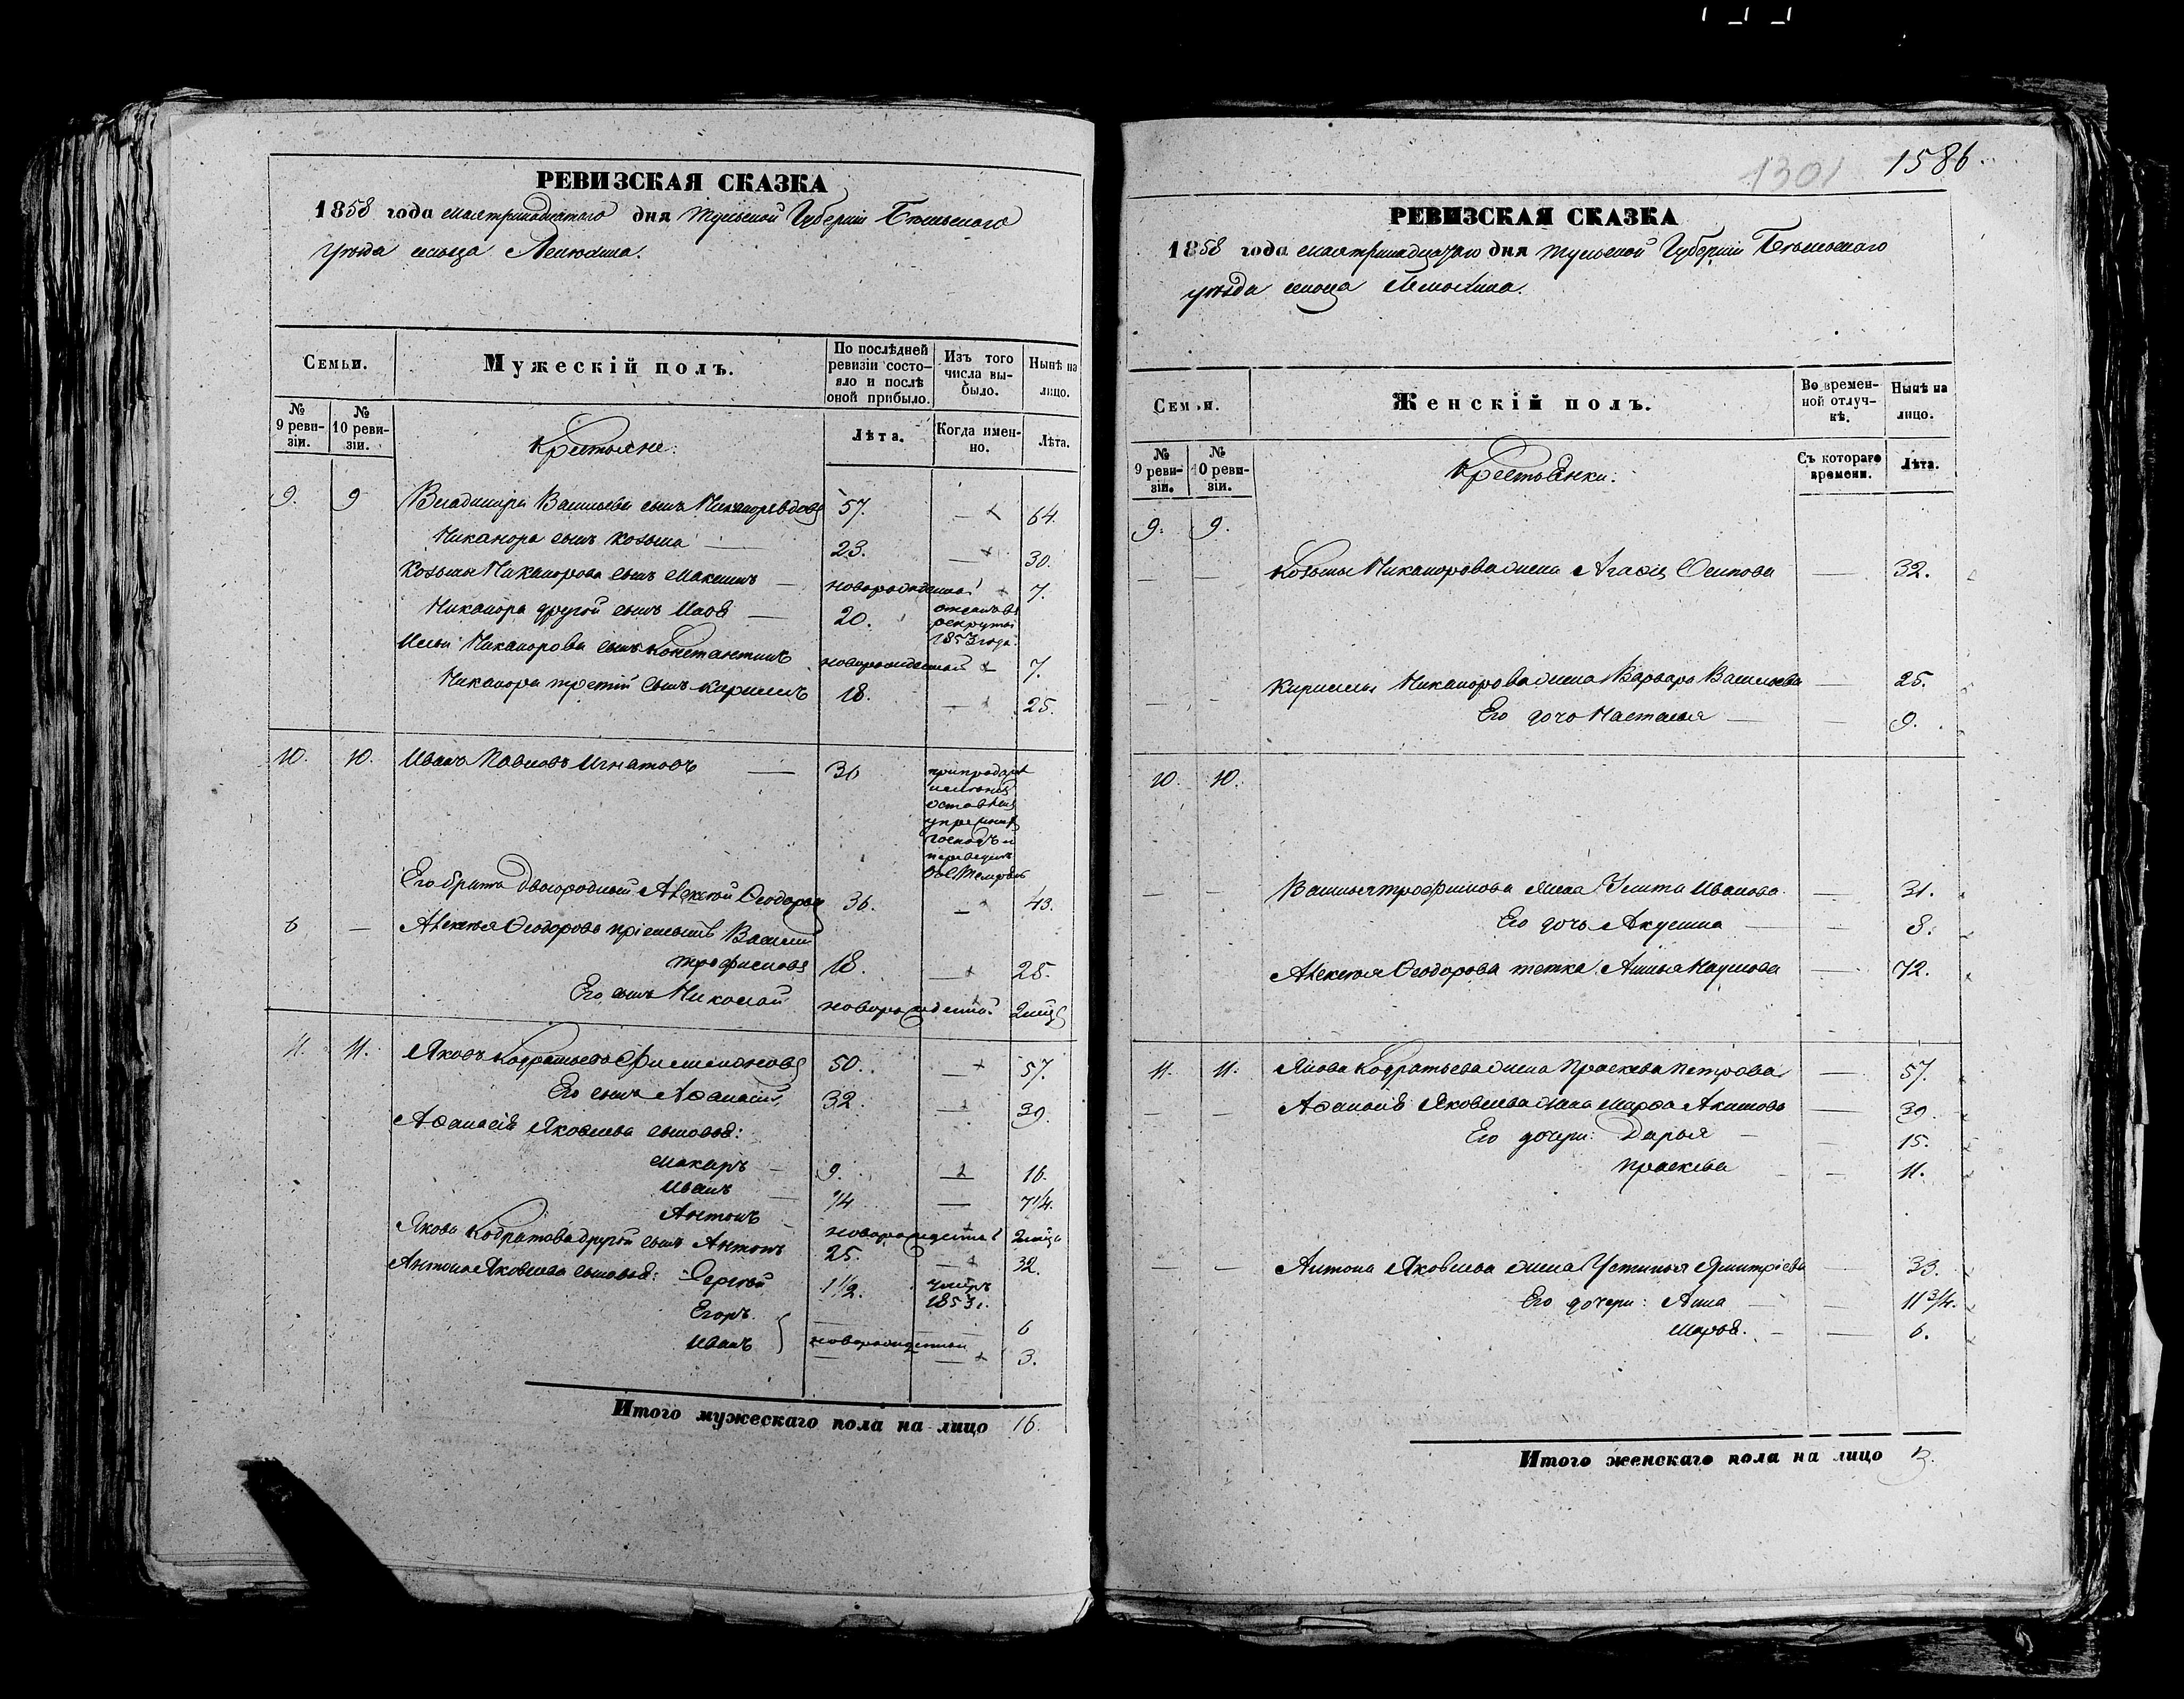 РЕВИЗСКАЯ СКАЗКА
1858 года мая тринадцатаго дня Тульской Губерніи Бѣлевскаго
уѣзда сельца
Семьи.
Мужескій полъ.
По послѣдней ревизіи состояло и послѣ оной прибыло.
Изъ того числа выбыло.
Нынѣ на лицо.
№ 9 ревизіи.
№ 10 ревизіи.
Крестьяне:
Лѣта.
Когда именно.
Лѣта.
9. 9 Васильевъ сынъ 57. — 64.
Никанора сынъ Козьма — 23. — 30.
Козьмы Никанорова сынъ Максимъ — новорожденный 7.
Никанора другой сынъ — 20. отданъ въ рекруты 1853 года
Никанорова сынъ Константинъ новорожденный 7.
Никанора третій сынъ Кирилъ 18. — 25.
10. 10. Иванъ Павловъ Игнатовъ — 36
Его братъ двоюродный Алексѣй Ѳеодоровъ 36. — 43.
6 — Алексѣя Ѳеодорова пріемышъ Василій
Трофимовъ 18. — 25.
Его сынъ Николай новорожденный 2 мѣц
11. 11. Яковъ Кодратьевъ 50. — 57.
Его сынъ Аѳанасій 32. — 39.
Аѳанасія Яковлева сыновья:
Макаръ — 9. — 16.
Иванъ — 1/4 — 7 1/4.
Антонъ — новорожденный 2 мѣца
Якова Кодратова другой сынъ Антонъ 25. — 32.
Антона Яковлева сыновья: Сергѣй 1 1/2. умеръ 1853 г.
Егоръ. — — 6
Иванъ } новорожденные — 3.
Итого мужескаго пола на лицо 16.
1301 1586.
РЕВИЗСКАЯ СКАЗКА
1858 года мая тринадцатаго дня Тульской Губерніи Бѣлевскаго
уѣзда сельца
Семьи.
Женскій полъ.
Во временной отлучкѣ.
Нынѣ на лицо.
№ 9 ревизіи.
№ 10 ревизіи.
Крестьянки:
Съ котораго времени.
Лѣта.
9. 9.
— — Козьмы Никанорова жена Агафія Осипова — 32.
— — Кирилы Никанорова жена Варвара Васильева — 25.
Его дочь Настасья — — 9.
10. 10.
— — Василья Трофимова жена Улита Иванова — 31.
Его дочь Акулина — — 8.
Алексѣя Ѳеодорова тетка Наумова — 72.
11. 11. Якова Кодратьева жена Прасковья Петрова — 57.
— — Аѳанасія Яковлева жена Марѳа Акимова — 39.
Его дочери: Дарья — — 15.
Прасковья — — 11.
— — Антона Яковлева жена Устинья Дмитріева — 33.
Его дочери: Анна — — 11 3/4.
Марья. — — 6.
Итого женскаго пола на лицо 13.